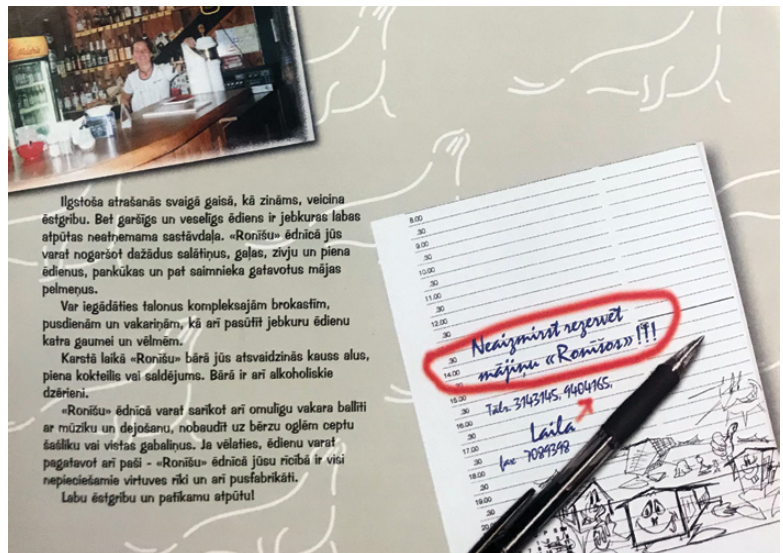 Ilgstoša atrašanās svaigā gaisā, kā zināms, veicina
ēstgribu. Bet garšīgs un veselīgs ēdiens ir jebkuras labas
atpūtas neatņemama sastāvdaļa. «Ronīšu» ēdnīcā jūs
varat nogaršot dažādus salātiņus, gaļas, zivju un piena
ēdienus, pankūkas un pat saimnieka gatavotus mājas
pelmeņus.
Var iegādāties talonus kompleksajām brokastīm,
pusdienām un vakariņām, kā arī pasūtīt jebkuru ēdienu
katra gaumei un vēlmēm.
Karstā laikā «Ronīšu» bārā jūs atsvaidzinās kauss alus,
piena kokteilis vai saldējums. Bārā ir arī alkoholiskie
dzērieni.
«Ronīšu» ēdnīcā varat sarīkot arī omulīgu vakara ballīti
ar mūziku un dejošanu, nobaudīt uz bērzu oglēm ceptu
šašliku vai vistas gabaliņus. Ja vēlaties, ēdienu varat
pagatavot arī paši - «Ronīšu» ēdnīcā jūsu rīcībā ir visi
nepieciešamie virtuves rīki un arī pusfabrikāti.
Labu ēstgribu un patīkamu atpūtu!
8.00
.30
9.00
.30
10.00
.30
11.00
.30
12.00
.30
.30
14.00
.30
15.00
.30
16.00
.30
17.00
.30
18.00
.30
19.00
.30
Neaizmirst rezervēt
mājiņu «Ronīšos» !!!
Tālr. 3143145, 9404165,
Laila
fax 7089398